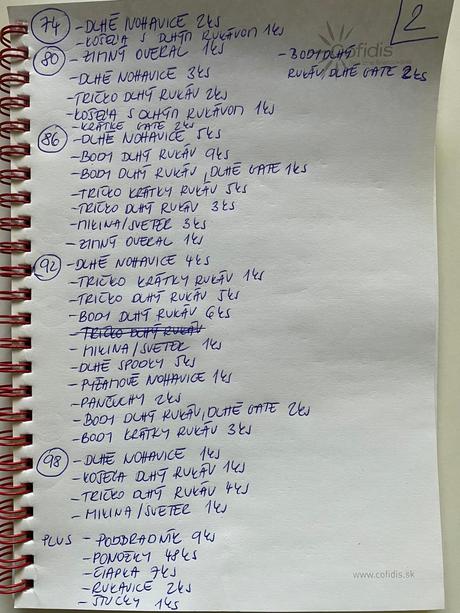 2
Cofidis
74 - DLHÉ NOHAVICE 2KS
- KOŠEĽA S DLHÝM RUKÁVOM 1KS
80 - ZIMNÝ OVERAL 1KS
- BODY DLHÝ
RUKÁV, DLHÉ GATE 2KS
- DLHÉ NOHAVICE 3KS
- TRIČKO DLHÝ RUKÁV 2KS
- KOŠEĽA S DLHÝM RUKÁVOM 1KS
- KRÁTKE GATE 2KS
86 - DLHÉ NOHAVICE 5KS
- BODY DLHÝ RUKÁV 9KS
- BODY DLHÝ RUKÁV, DLHÉ GATE 1KS
- TRIČKO KRÁTKY RUKÁV 5KS
- TRIČKO DLHÝ RUKÁV 3KS
- MIKINA/SVETER 3KS
- ZIMNÝ OVERAL 1KS
92 - DLHÉ NOHAVICE 4KS
- TRIČKO KRÁTKY RUKÁV 1KS
- TRIČKO DLHÝ RUKÁV 5KS
- BODY DLHÝ RUKÁV 6KS
- TRIČKO DLHÝ RUKÁV
- MIKINA/SVETER 1KS
- DLHÉ SPODKY 5KS
- PYŽAMOVÉ NOHAVICE 1KS
- PANČUCHY 2KS
- BODY DLHÝ RUKÁV, DLHÉ GATE 2KS
- BODY KRÁTKY RUKÁV 3KS
98 - DLHÉ NOHAVICE 1KS
- KOŠEĽA DLHÝ RUKÁV 1KS
- TRIČKO DLHÝ RUKÁV 4KS
- MIKINA/SVETER 1KS
PLUS - PODBRADNÍK 9KS
- PONOŽKY 48KS
- ČIAPKA 7KS
- RUKAVICE 2KS
- ŠTUCKY 1KS
www.cofidis.sk